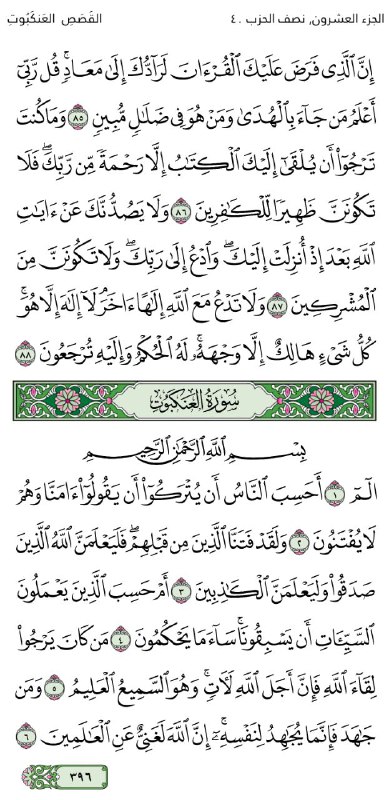 الجزء العشرون, نصف الحزب ٤٠
القَصَصِ العَنكَبُوتِ
إِنَّ الَّذِي فَرَضَ عَلَيْكَ الْقُرْءَانَ لَرَآدُّكَ إِلَىٰ مَعَادٍ ۚ قُل رَّبِّي
أَعْلَمُ مَن جَآءَ بِالْهُدَىٰ وَمَنْ هُوَ فِي ضَلَٰلٍ مُّبِينٍ ٨٥ وَمَا كُنتَ
تَرْجُوٓا۟ أَن يُلْقَىٰٓ إِلَيْكَ الْكِتَٰبُ إِلَّا رَحْمَةً مِّن رَّبِّكَ ۖ فَلَا
تَكُونَنَّ ظَهِيرًا لِّلْكَٰفِرِينَ ٨٦ وَلَا يَصُدُّنَّكَ عَنْ ءَايَٰتِ
اللَّهِ بَعْدَ إِذْ أُنزِلَتْ إِلَيْكَ ۖ وَادْعُ إِلَىٰ رَبِّكَ ۖ وَلَا تَكُونَنَّ مِنَ
الْمُشْرِكِينَ ٨٧ وَلَا تَدْعُ مَعَ اللَّهِ إِلَٰهًا ءَاخَرَ ۘ لَآ إِلَٰهَ إِلَّا هُوَ ۚ
كُلُّ شَيْءٍ هَالِكٌ إِلَّا وَجْهَهُۥ ۚ لَهُ الْحُكْمُ وَإِلَيْهِ تُرْجَعُونَ ٨٨
سُورَةُ الْعَنكَبُوتِ
بِسْمِ اللَّهِ الرَّحْمَٰنِ الرَّحِيمِ
الٓمٓ ١ أَحَسِبَ النَّاسُ أَن يُتْرَكُوٓا۟ أَن يَقُولُوٓا۟ ءَامَنَّا وَهُمْ
لَا يُفْتَنُونَ ٢ وَلَقَدْ فَتَنَّا الَّذِينَ مِن قَبْلِهِمْ ۖ فَلَيَعْلَمَنَّ اللَّهُ الَّذِينَ
صَدَقُوا۟ وَلَيَعْلَمَنَّ الْكَٰذِبِينَ ٣ أَمْ حَسِبَ الَّذِينَ يَعْمَلُونَ
السَّيِّـَٔاتِ أَن يَسْبِقُونَا ۚ سَآءَ مَا يَحْكُمُونَ ٤ مَن كَانَ يَرْجُوا۟
لِقَآءَ اللَّهِ فَإِنَّ أَجَلَ اللَّهِ لَـَٔاتٍ ۚ وَهُوَ السَّمِيعُ الْعَلِيمُ ٥ وَمَن
جَٰهَدَ فَإِنَّمَا يُجَٰهِدُ لِنَفْسِهِۦٓ ۚ إِنَّ اللَّهَ لَغَنِيٌّ عَنِ الْعَٰلَمِينَ ٦
٣٩٦